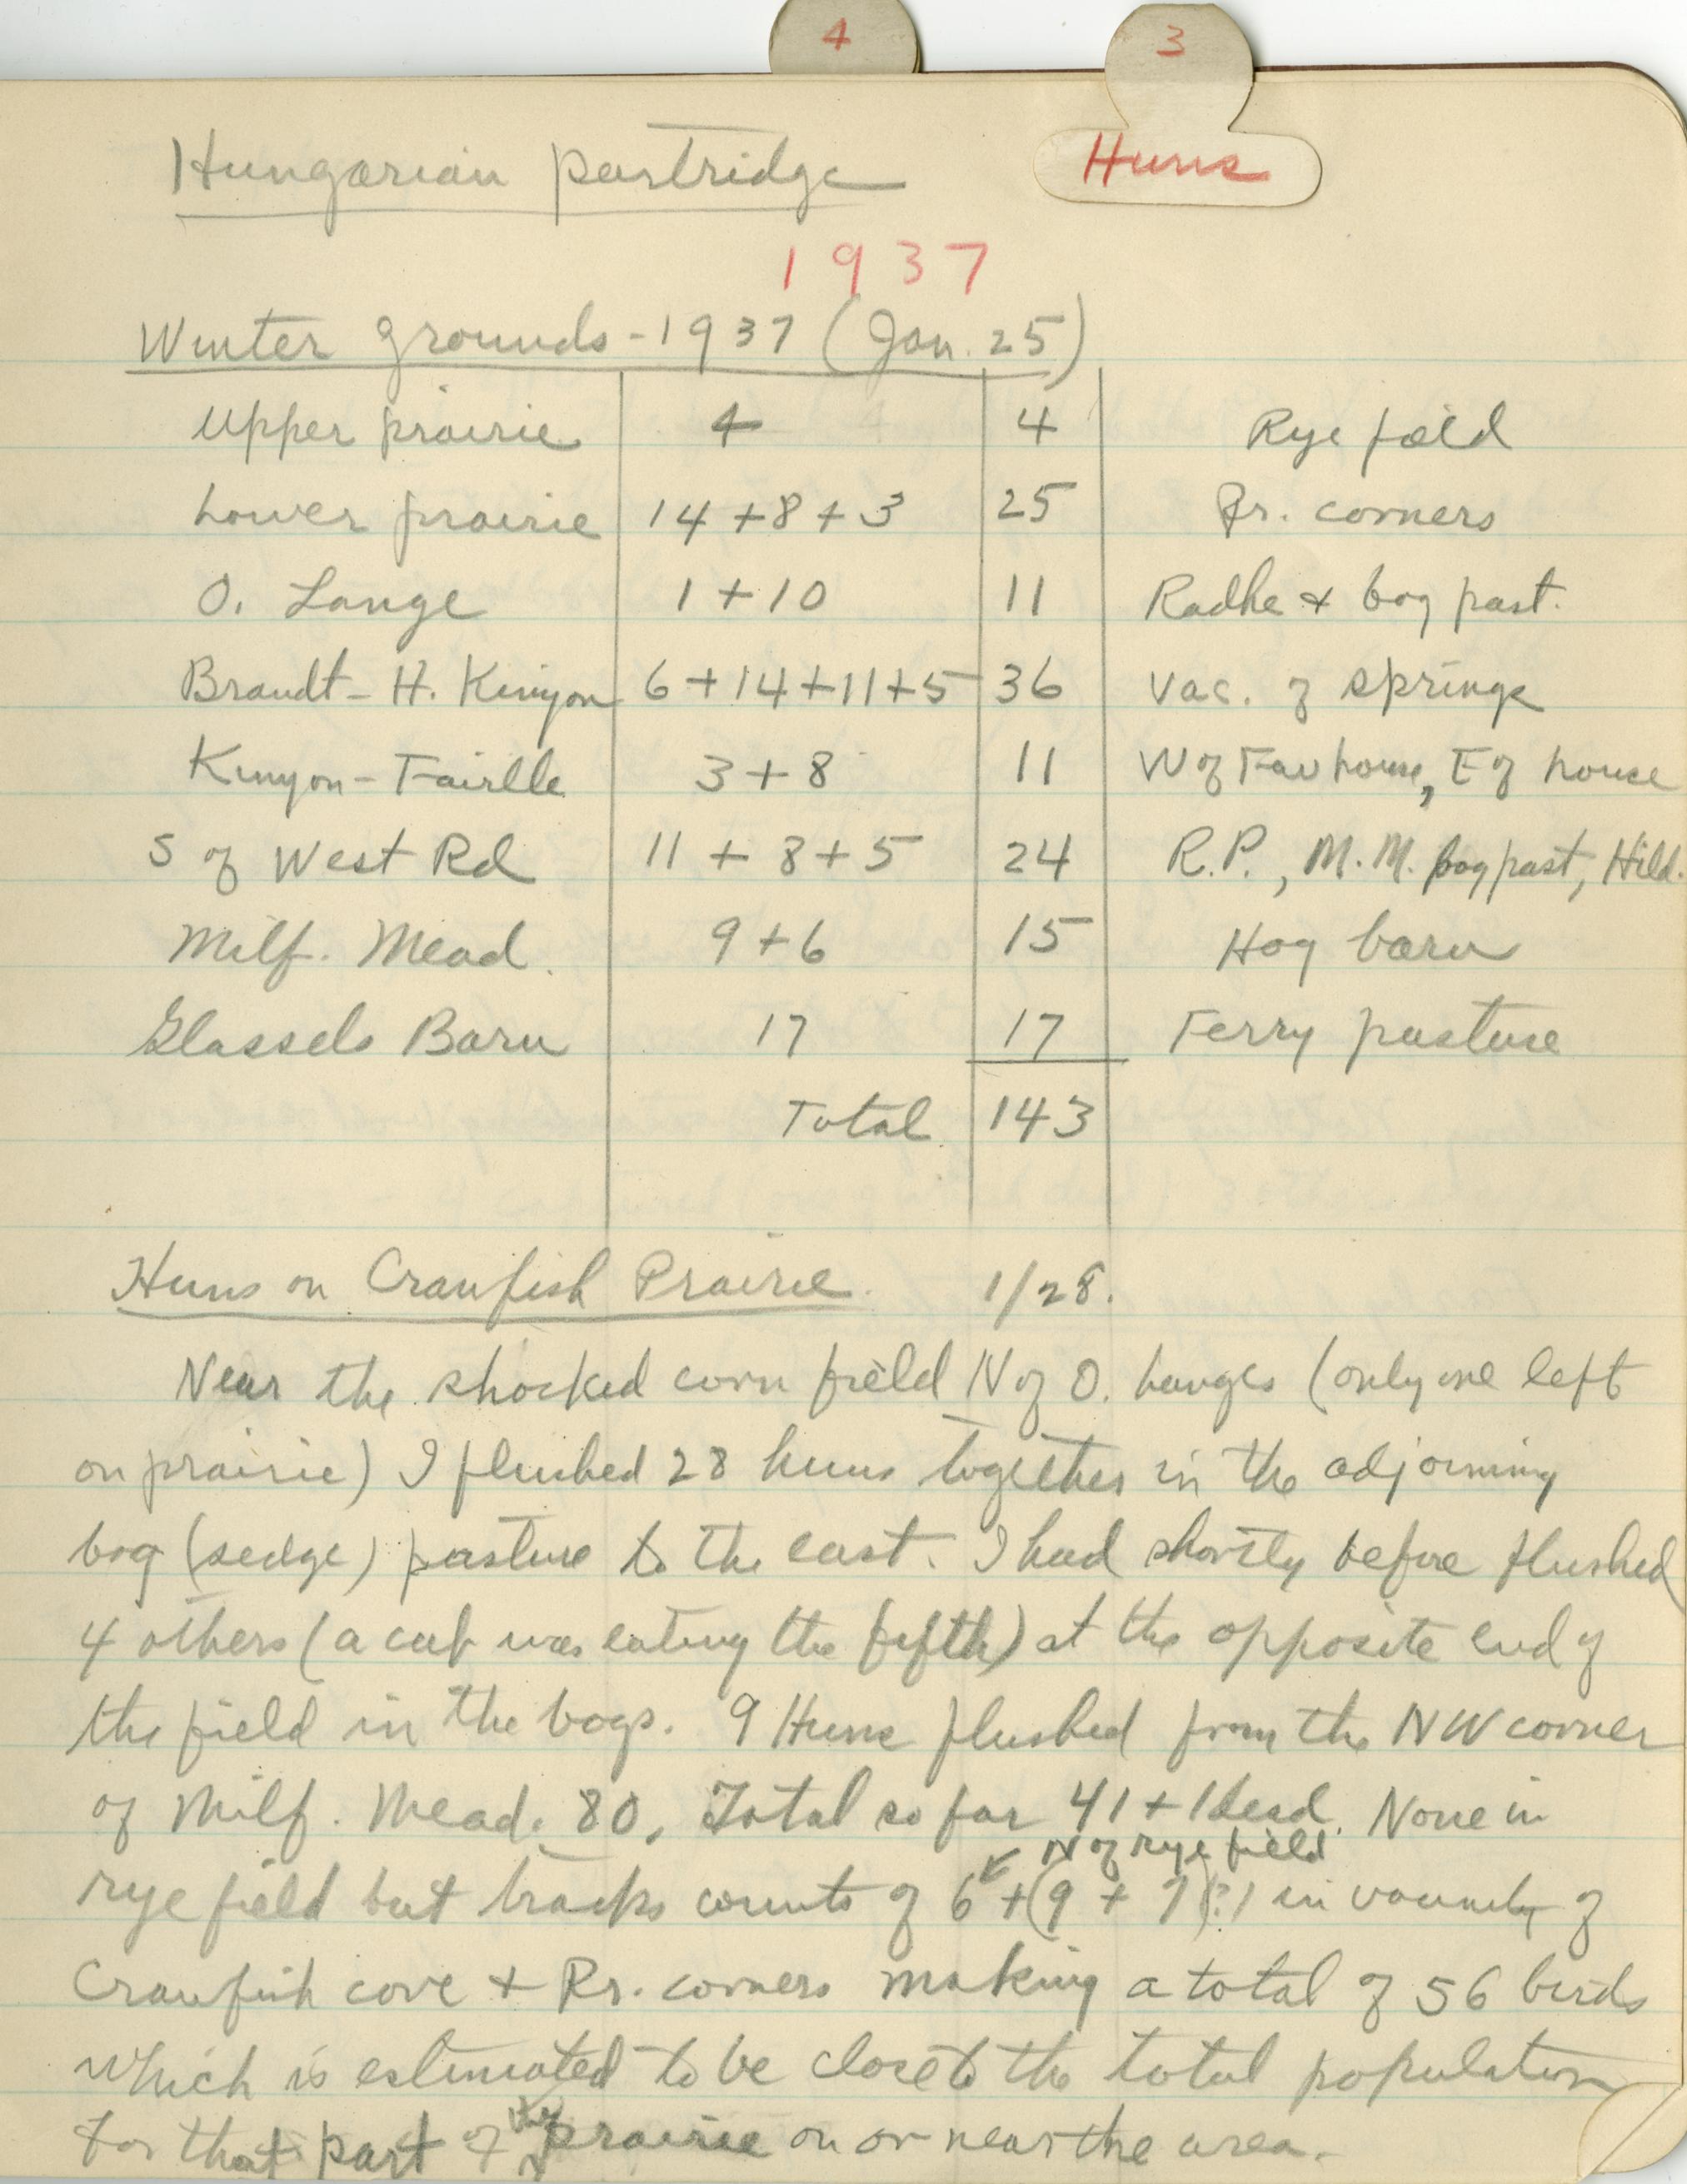 4 3
Hungarian partridge Huns
1937
Winter grounds - 1937 (Jan. 25)
Upper prairie 4 4 Rye field
Lower prairie 14 + 8 + 3 25 Pr. corners
O. Lange 1 + 10 11 Radhe + bog past.
Brandt - H. Kinyon 6 + 14 + 11 + 5 36 Vac. of springs
Kinyon - Fairlle 3 + 8 11 W of house, E of house
S of West Rd 11 + 8 + 5 24 R.P., M.M. bog past, Hild.
Milf. Mead. 9 + 6 15 Hog barn
Glassels Barn 17 17 Ferry pasture
Total 143
Huns on Crawfish Prairie. 1/28.
Near the shocked corn field N of O. Langes (only one left
on prairie) I flushed 28 huns together in the adjoining
bog (sedge) pasture to the east. I had shortly before flushed
4 others (a cat was eating the fifth) at the opposite end of
the field in the bogs. 9 Huns flushed from the NW corner
of Milf. Mead. 80. Total so far 41 + 1 dead. None in
N of rye field
rye field but tracks counts of 6 + (9 + 7) in vicinity of
Crawfish cove + Pr. corners making a total of 56 birds
which is estimated to be close to the total population
for that part of the prairie on or near the area.